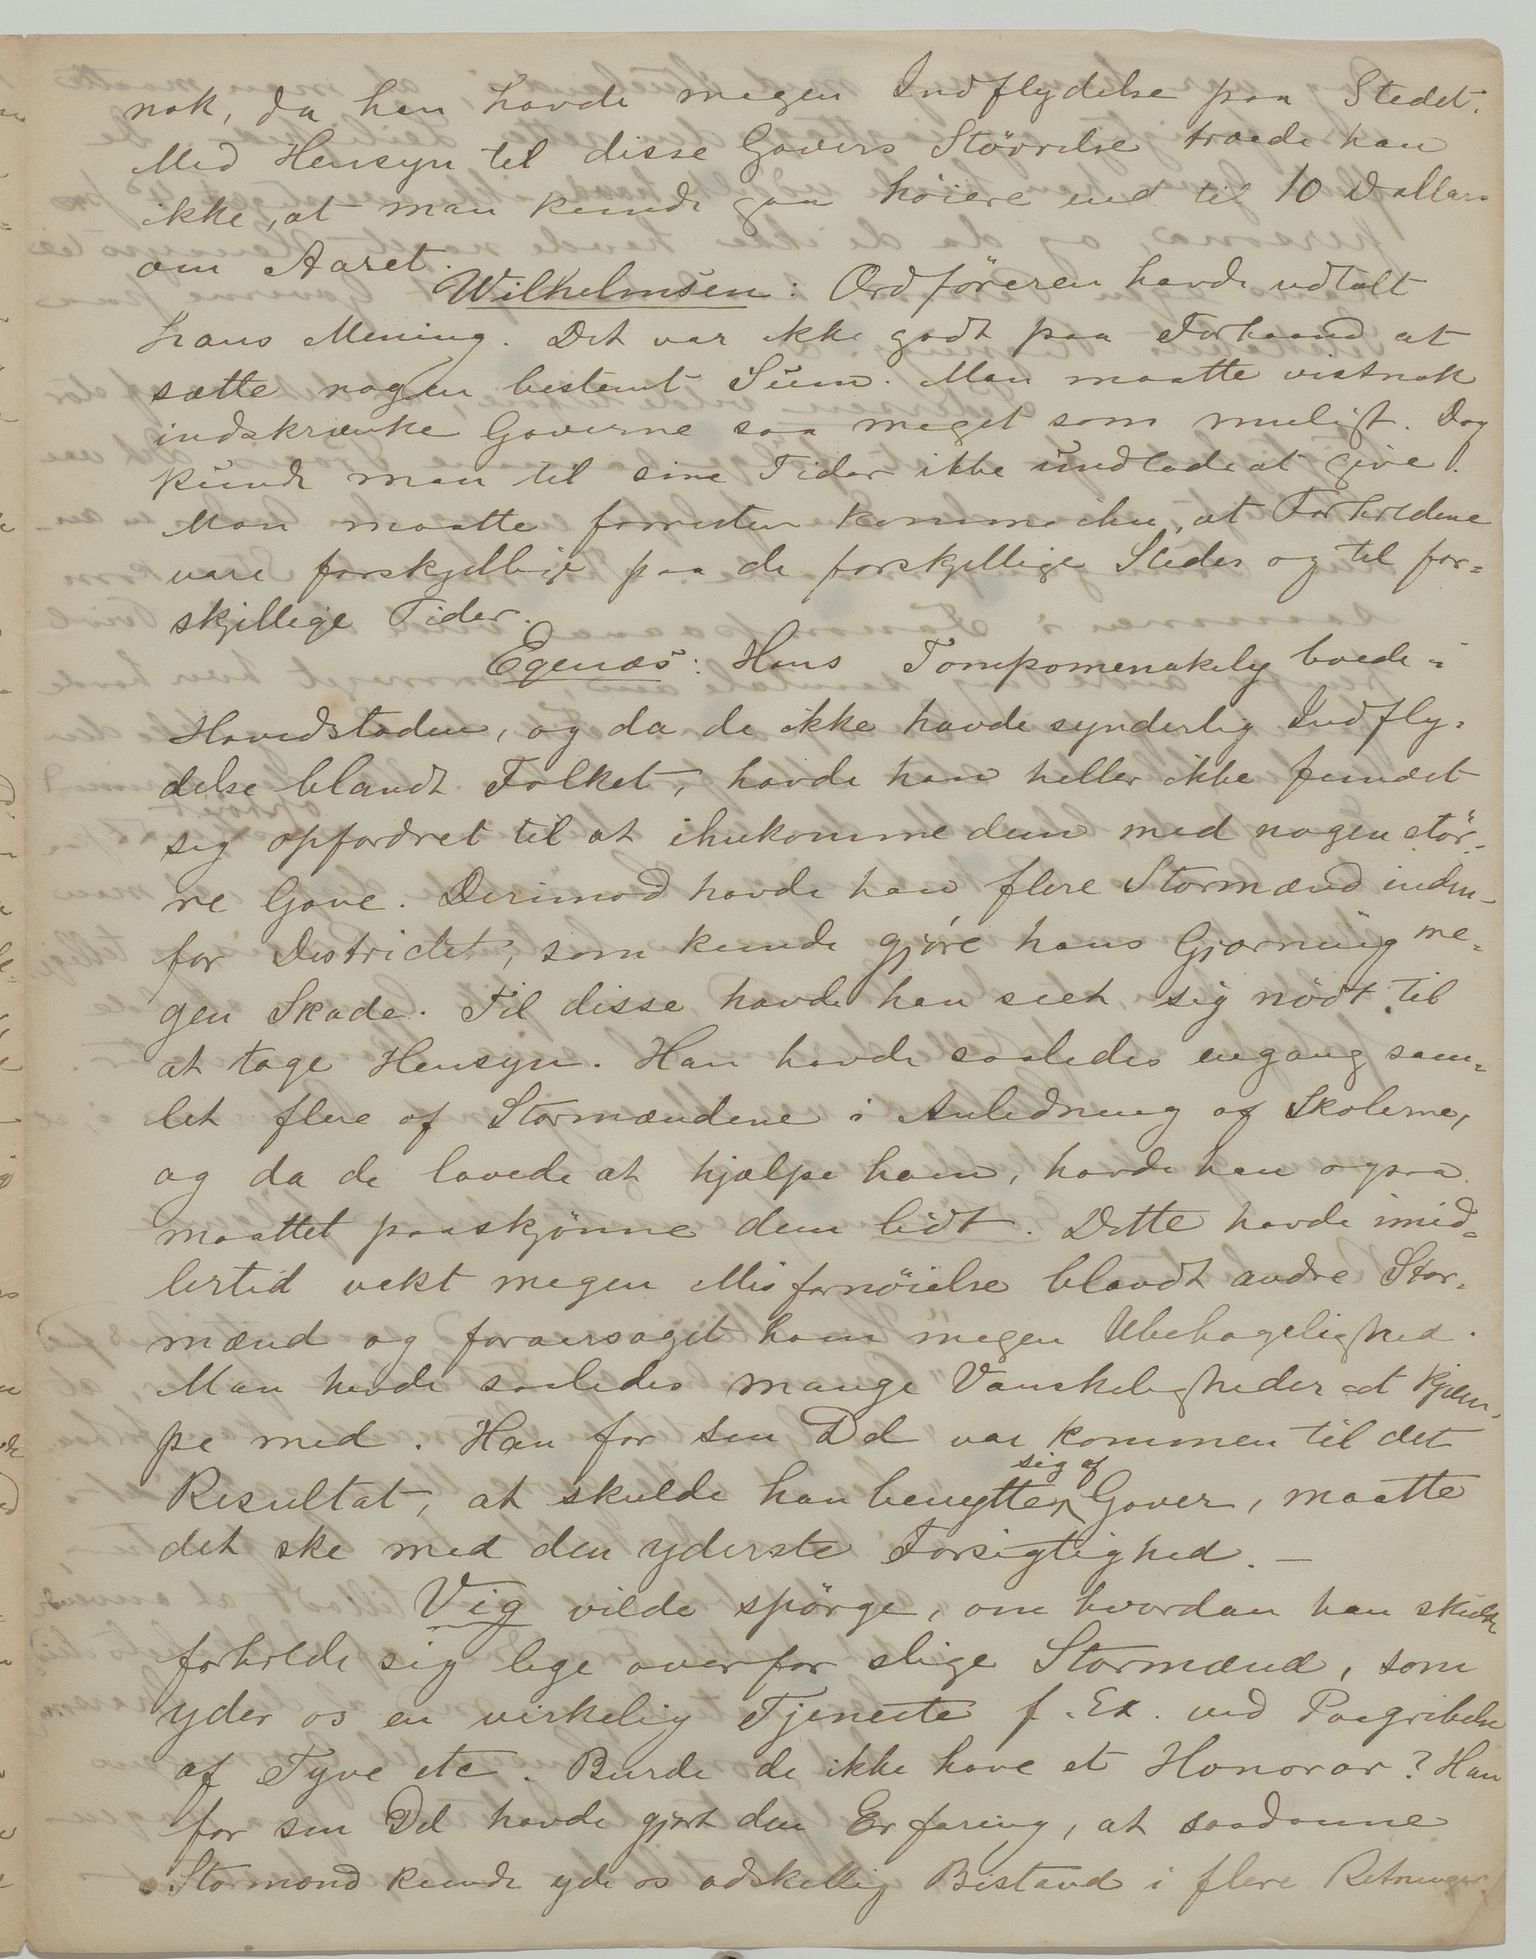 nok, da han havde megen Indflydelse paa Stedet.
Med Hensyn til disse Gavers Störrelse troede han
ikke, at man kunde gaa höiere end til 10 Dollars
om Aaret.
Wilhelmsen: Ordföreren havde udtalt
hans Mening. Det var ikke godt paa Forhaand at
sætte nogen bestemt Sum. Man maatte vistnok
indskrænke Gaverne saa meget som muligt. Dog
kunde man til sine Tider ikke undlade at give.
Man maatte forresten komme ihu, at Forholdene
vare forskjellige paa de forskjellige Steder og til for=
skjellige Tider.
Egenæs: Hans Tompomenakely boede i
Hovedstaden, og da de ikke havde synderlig Indfly=
delse blandt Folket, havde han heller ikke fundet
sig opfordret til at ihukomme dem med nogen stör=
re Gave. Derimod havde han flere Stormænd inden=
for Districtet, som kunde gjöre hans Gjerning me=
gen Skade. Til disse havde han seet sig nödt til
at tage Hensyn. Han havde saaledes engang sam=
let flere af Stormændene i Anledning af Skolerne,
og da de lovede at hjælpe ham, havde han ogsaa
maattet paaskjönne dem lidt. Dette havde imid=
lertid vakt megen Misfornöielse blandt andre Stor=
mænd og foraarsaget ham megen Ubehagelighed.
Man havde saaledes mange Vanskeligheder at kjæm=
pe med. Han for sin Del var kommen til det
Resultat, at skulde han benytte sig af Gaver, maatte
det ske med den yderste Forsigtighed. —
Vig vilde spörge, om hvordan han skulde
forholde sig lige overfor slige Stormænd, som
yder os en virkelig Tjeneste f. Ex. ved Paagribelse
af Tyve etc. Burde de ikke have et Honorar? Han
for sin Del havde gjort den Erfaring, at saadanne
Stormænd kunde yde os adskillig Bistand i flere Retninger.